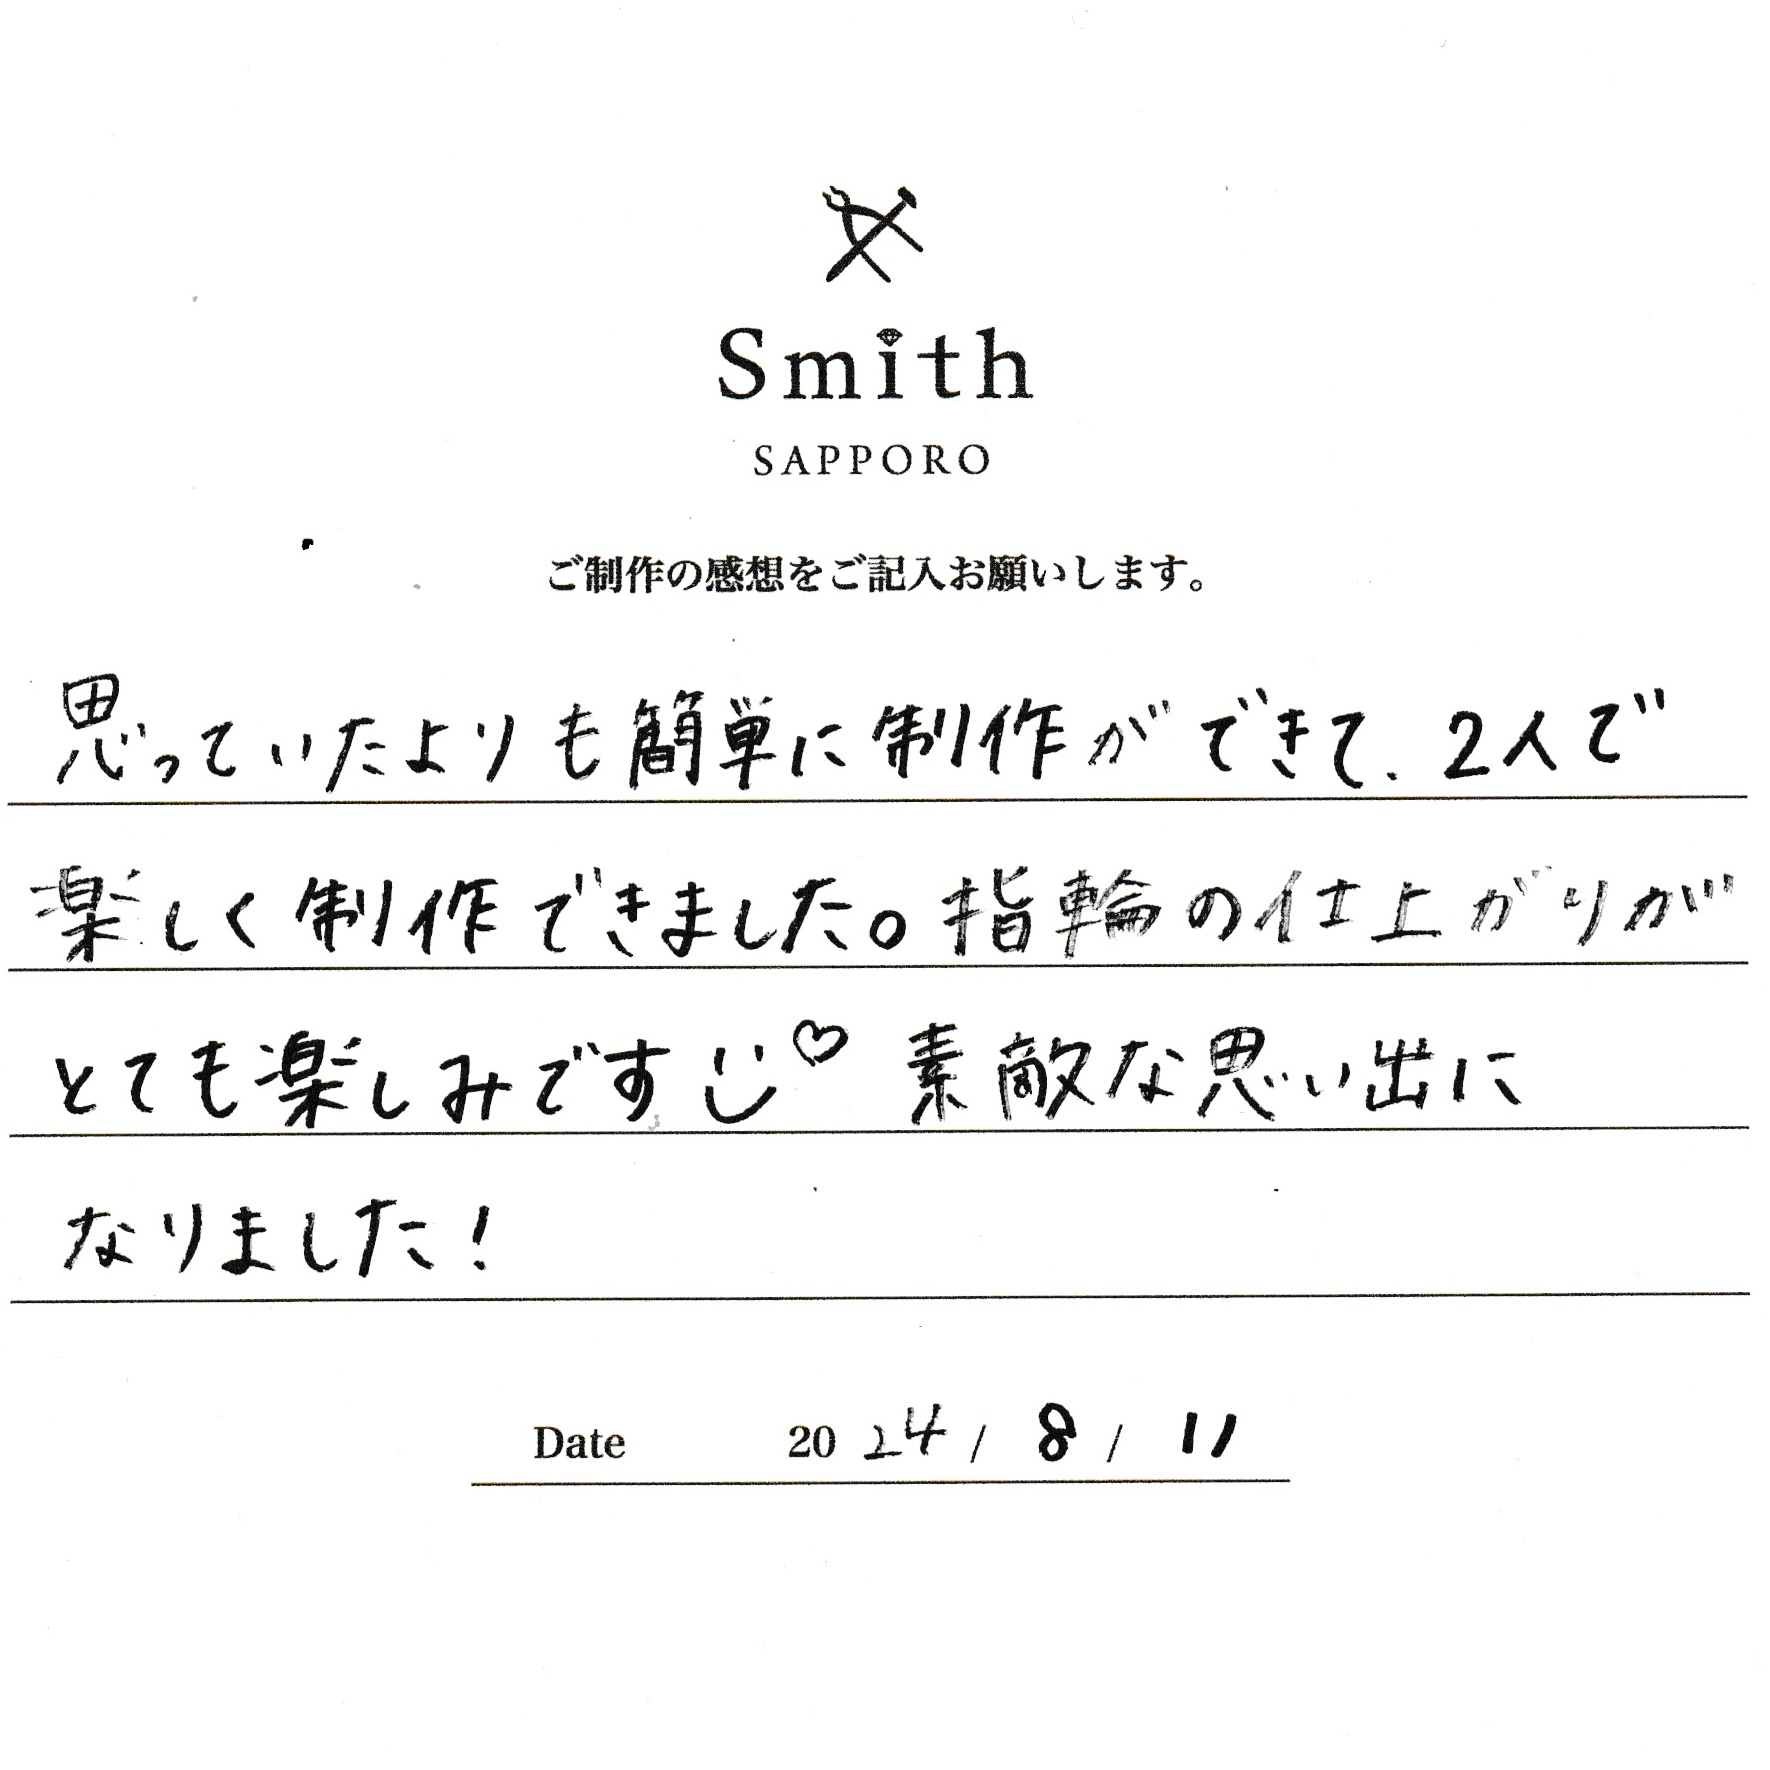 Smith
SAPPORO
ご制作の感想をご記入お願いします。
思っていたよりも簡単に制作ができて、2人で
楽しく制作できました。指輪の仕上がりが
とても楽しみです 素敵な思い出に
なりました!
Date 2024 / 8 / 11